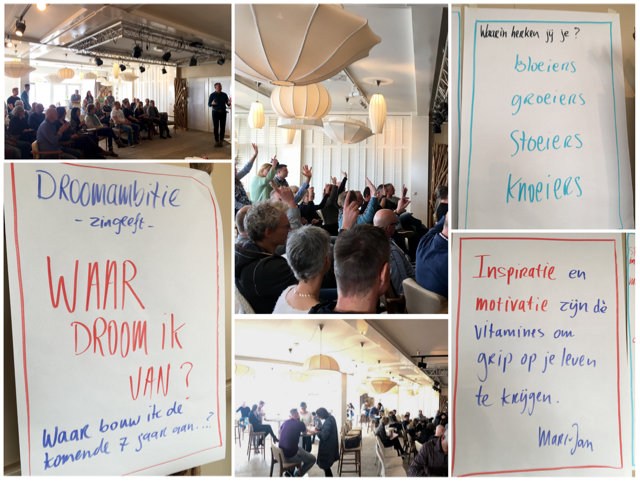 Waarin herken jij je?
bloeiers
groeiers
Stoeiers
Knoeiers
DROOMAMBITIE
- zingeeft -
WAAR
DROOM ik
VAN?
Waar bouw ik de
komende 7 jaar aan....?
Inspiratie en
motivatie zijn dè
vitamines om
grip op je leven
te krijgen.
Mari-Jan